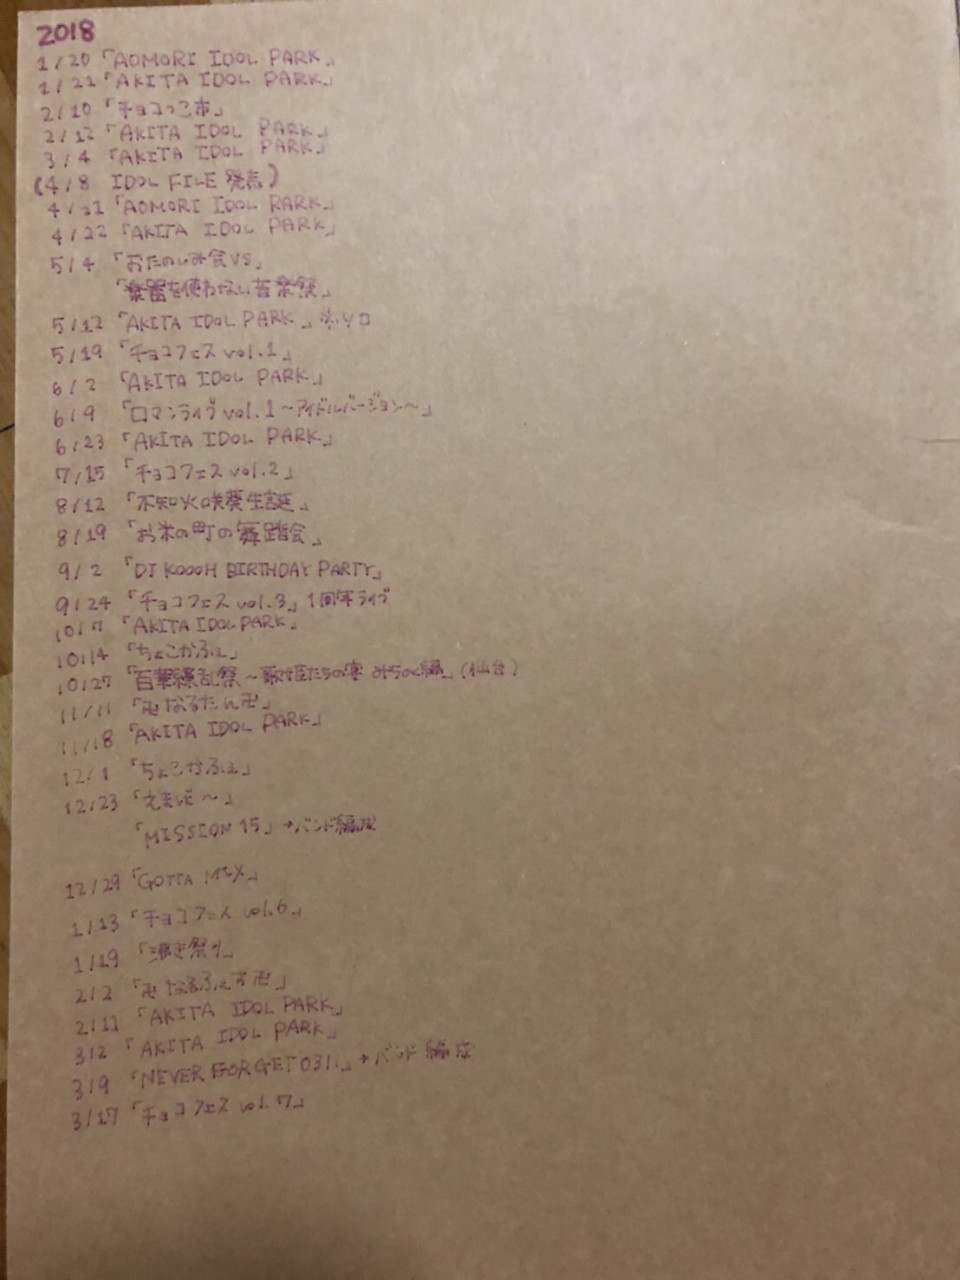 2018
1/20「AOMORI IDOL PARK」
1/21「AKITA IDOL PARK」
2/10「チョコっこ市」
2/12「AKITA IDOL PARK」
3/4「AKITA IDOL PARK」
(4/8 IDOL FILE 発売)
4/21「AOMORI IDOL PARK」
4/22「AKITA IDOL PARK」
5/4「おたのしみ会VS」
「楽器を使わない音楽祭」
5/12「AKITA IDOL PARK」※ソロ
5/19「チョコフェス vol.1」
6/2「AKITA IDOL PARK」
6/9「ロマンライブ vol.1～アイドルバージョン～」
6/23「AKITA IDOL PARK」
7/15「チョコフェス vol.2」
8/12「不知火咲葵生誕」
8/19「お米の町の舞踏会」
9/2「DJ KOOOH BIRTHDAY PARTY」
9/24「チョコフェス vol.3」1周年ライブ
10/7「AKITA IDOL PARK」
10/14「ちょこかふぇ」
10/27「百華繚乱祭～歌姫たちの宴 みちのく編」(仙台)
11/11「卍なるたん卍」
11/18「AKITA IDOL PARK」
12/1「ちょこかふぇ」
12/23「えまいど～」
「MISSION 15」→バンド編成
12/29「GOTTA MIX」
1/13「チョコフェス vol.6」
1/19「沸き祭り」
2/2「卍なるふぇす卍」
2/11「AKITA IDOL PARK」
3/2「AKITA IDOL PARK」
3/9「NEVER FORGET 0311」→バンド編成
3/17「チョコフェス vol.7」